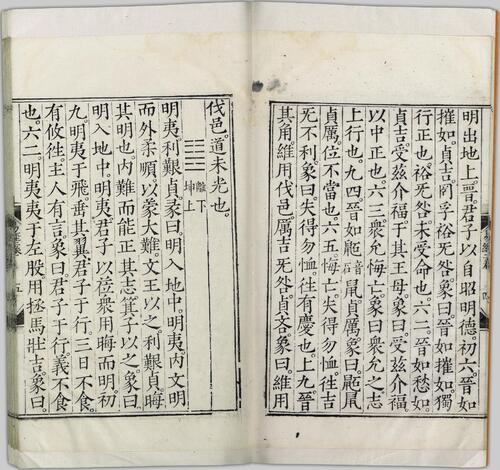 明出地上晉君子以自昭明德。初六。晉如
摧如。貞吉。罔孚裕无咎。象曰。晉如摧如獨
行正也。裕无咎未受命也。六二。晉如愁如。
貞吉。受茲介福于其王母。象曰。受茲介福。
以中正也。六三。衆允悔亡。象曰衆允之志
上行也。九四晉如鼫音石鼠貞厲。象曰。鼫鼠
貞厲。位不當也。六五。悔亡。失得勿恤。往吉
无不利。象曰。失得勿恤。往有慶也。上九。晉
其角維用伐邑。厲吉无咎。貞吝。象曰。維用
伐邑。道未光也。
離下
坤上
明夷。利艱貞。彖曰。明入地中。明夷。內文明
而外柔順。以蒙大難。文王以之。利艱貞。晦
其明也。內難而能正。其志箕子以之。象曰。
明入地中。明夷。君子以莅衆用晦而明。初
九。明夷于飛。垂其翼。君子于行。三日不食。
有攸往。主人有言。象曰君子于行。義不食
也。六二。明夷夷于左股用拯馬壯吉。象曰。
五